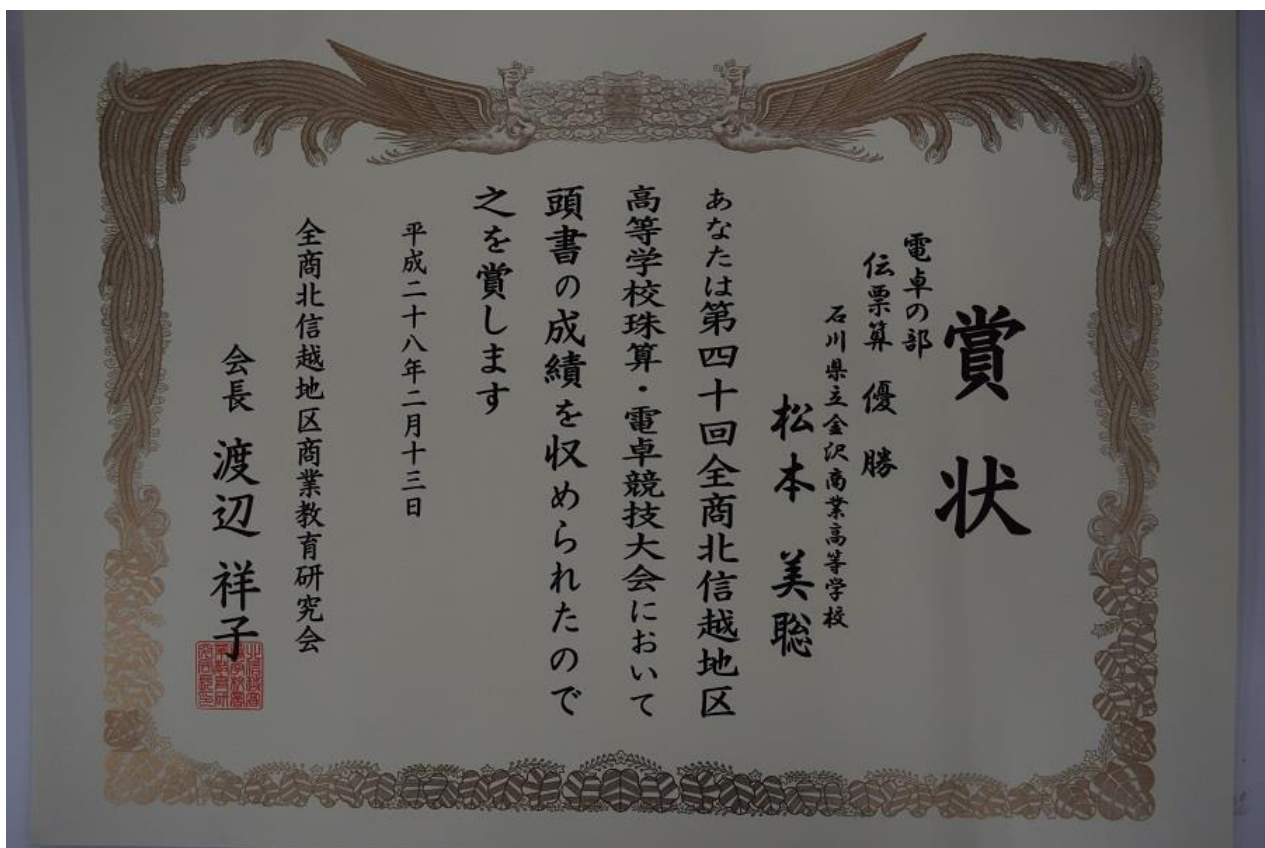 賞状
電卓の部
伝票算 優勝
石川県立金沢商業高等学校
松本 美聡
あなたは第四十回全商北信越地区
高等学校珠算・電卓競技大会において
頭書の成績を収められたので
之を賞します
平成二十八年二月十三日
全商北信越地区商業教育研究会
会長 渡辺 祥子